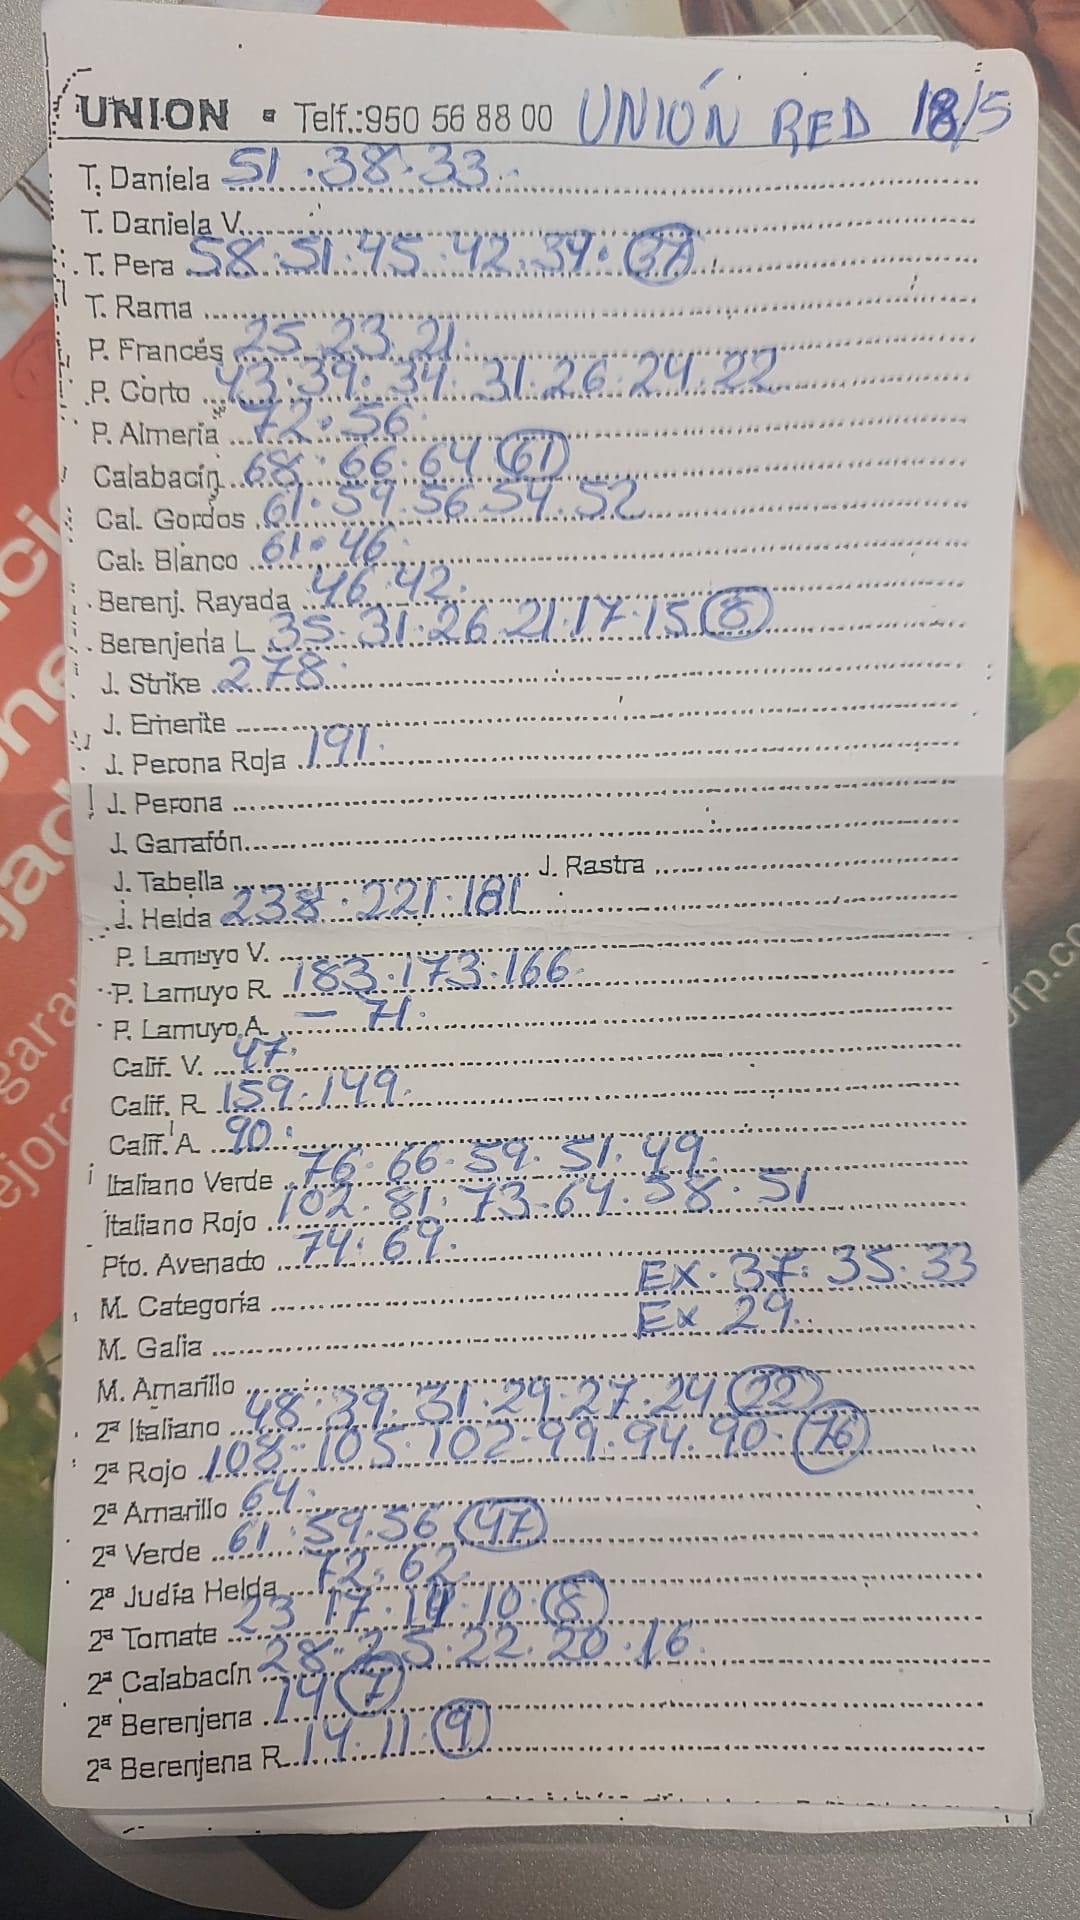 UNION - Telf.:950 56 88 00 UNIÓN RED 18/5
T. Daniela 51.38.33
T. Daniela V.
T. Pera 58.51.45.42.39.(37)
T. Rama
P. Francés 25.23.21.
P. Corto 43.39.34.31.26.24.22
P. Almería 72.56.
Calabacín 68.66.64 (61)
Cal. Gordos 61.59.56.54.52
Cal. Blanco 61.46.
Berenj. Rayada 46.42.
Berenjena L. 35.31.26.21.17.15 (8)
J. Strike 278.
J. Emerite
J. Perona Roja 191.
J. Perona
J. Garrafón
J. Tabella J. Rastra
J. Helda 238.221.181
P. Lamuyo V.
P. Lamuyo R. 183.173.166.
P. Lamuyo A. — 71.
Calif. V. 47.
Calif. R. 159.149.
Calif. A. 90.
Italiano Verde 76.66.59.51.49.
Italiano Rojo 102.81.73.64.58.51
Pto. Avenado 74.69.
M. Categoría EX.37.35.33
M. Galia EX 29.
M. Amarillo
2ª Italiano 48.39.31.29.27.24 (22)
2ª Rojo 108.105.102.99.94.90.(76)
2ª Amarillo 64.
2ª Verde 61.59.56 (47)
2ª Judía Helda 72.62.
2ª Tomate 23 17.14.10.(8)
2ª Calabacín 28.25.22.20.16.
2ª Berenjena 14 (7)
2ª Berenjena R. 14.11.(9)